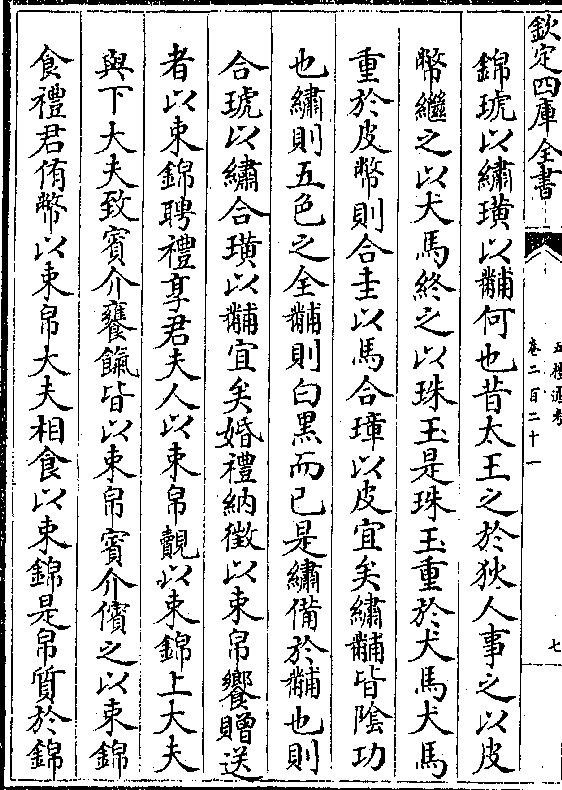 欽定四庫全書
五禮通考
卷二百二十一
七
錦琥以繡璜以黼何也昔太王之於狄人事之以皮
幣繼之以犬馬終之以珠玉是珠玉重於犬馬犬馬
重於皮幣則合圭以馬合璋以皮宜矣繡黼皆陰功
也繡則五色之全黼則白黑而已是繡備於黼也則
合琥以繡合璜以黼宜矣婚禮納徵以束帛饗贈送
者以束錦聘禮享君夫人以束帛覿以束錦上大夫
與下大夫致賓介饔餼皆以束帛賓介儐之以束錦
食禮君侑幣以束帛大夫相食以束錦是帛質於錦